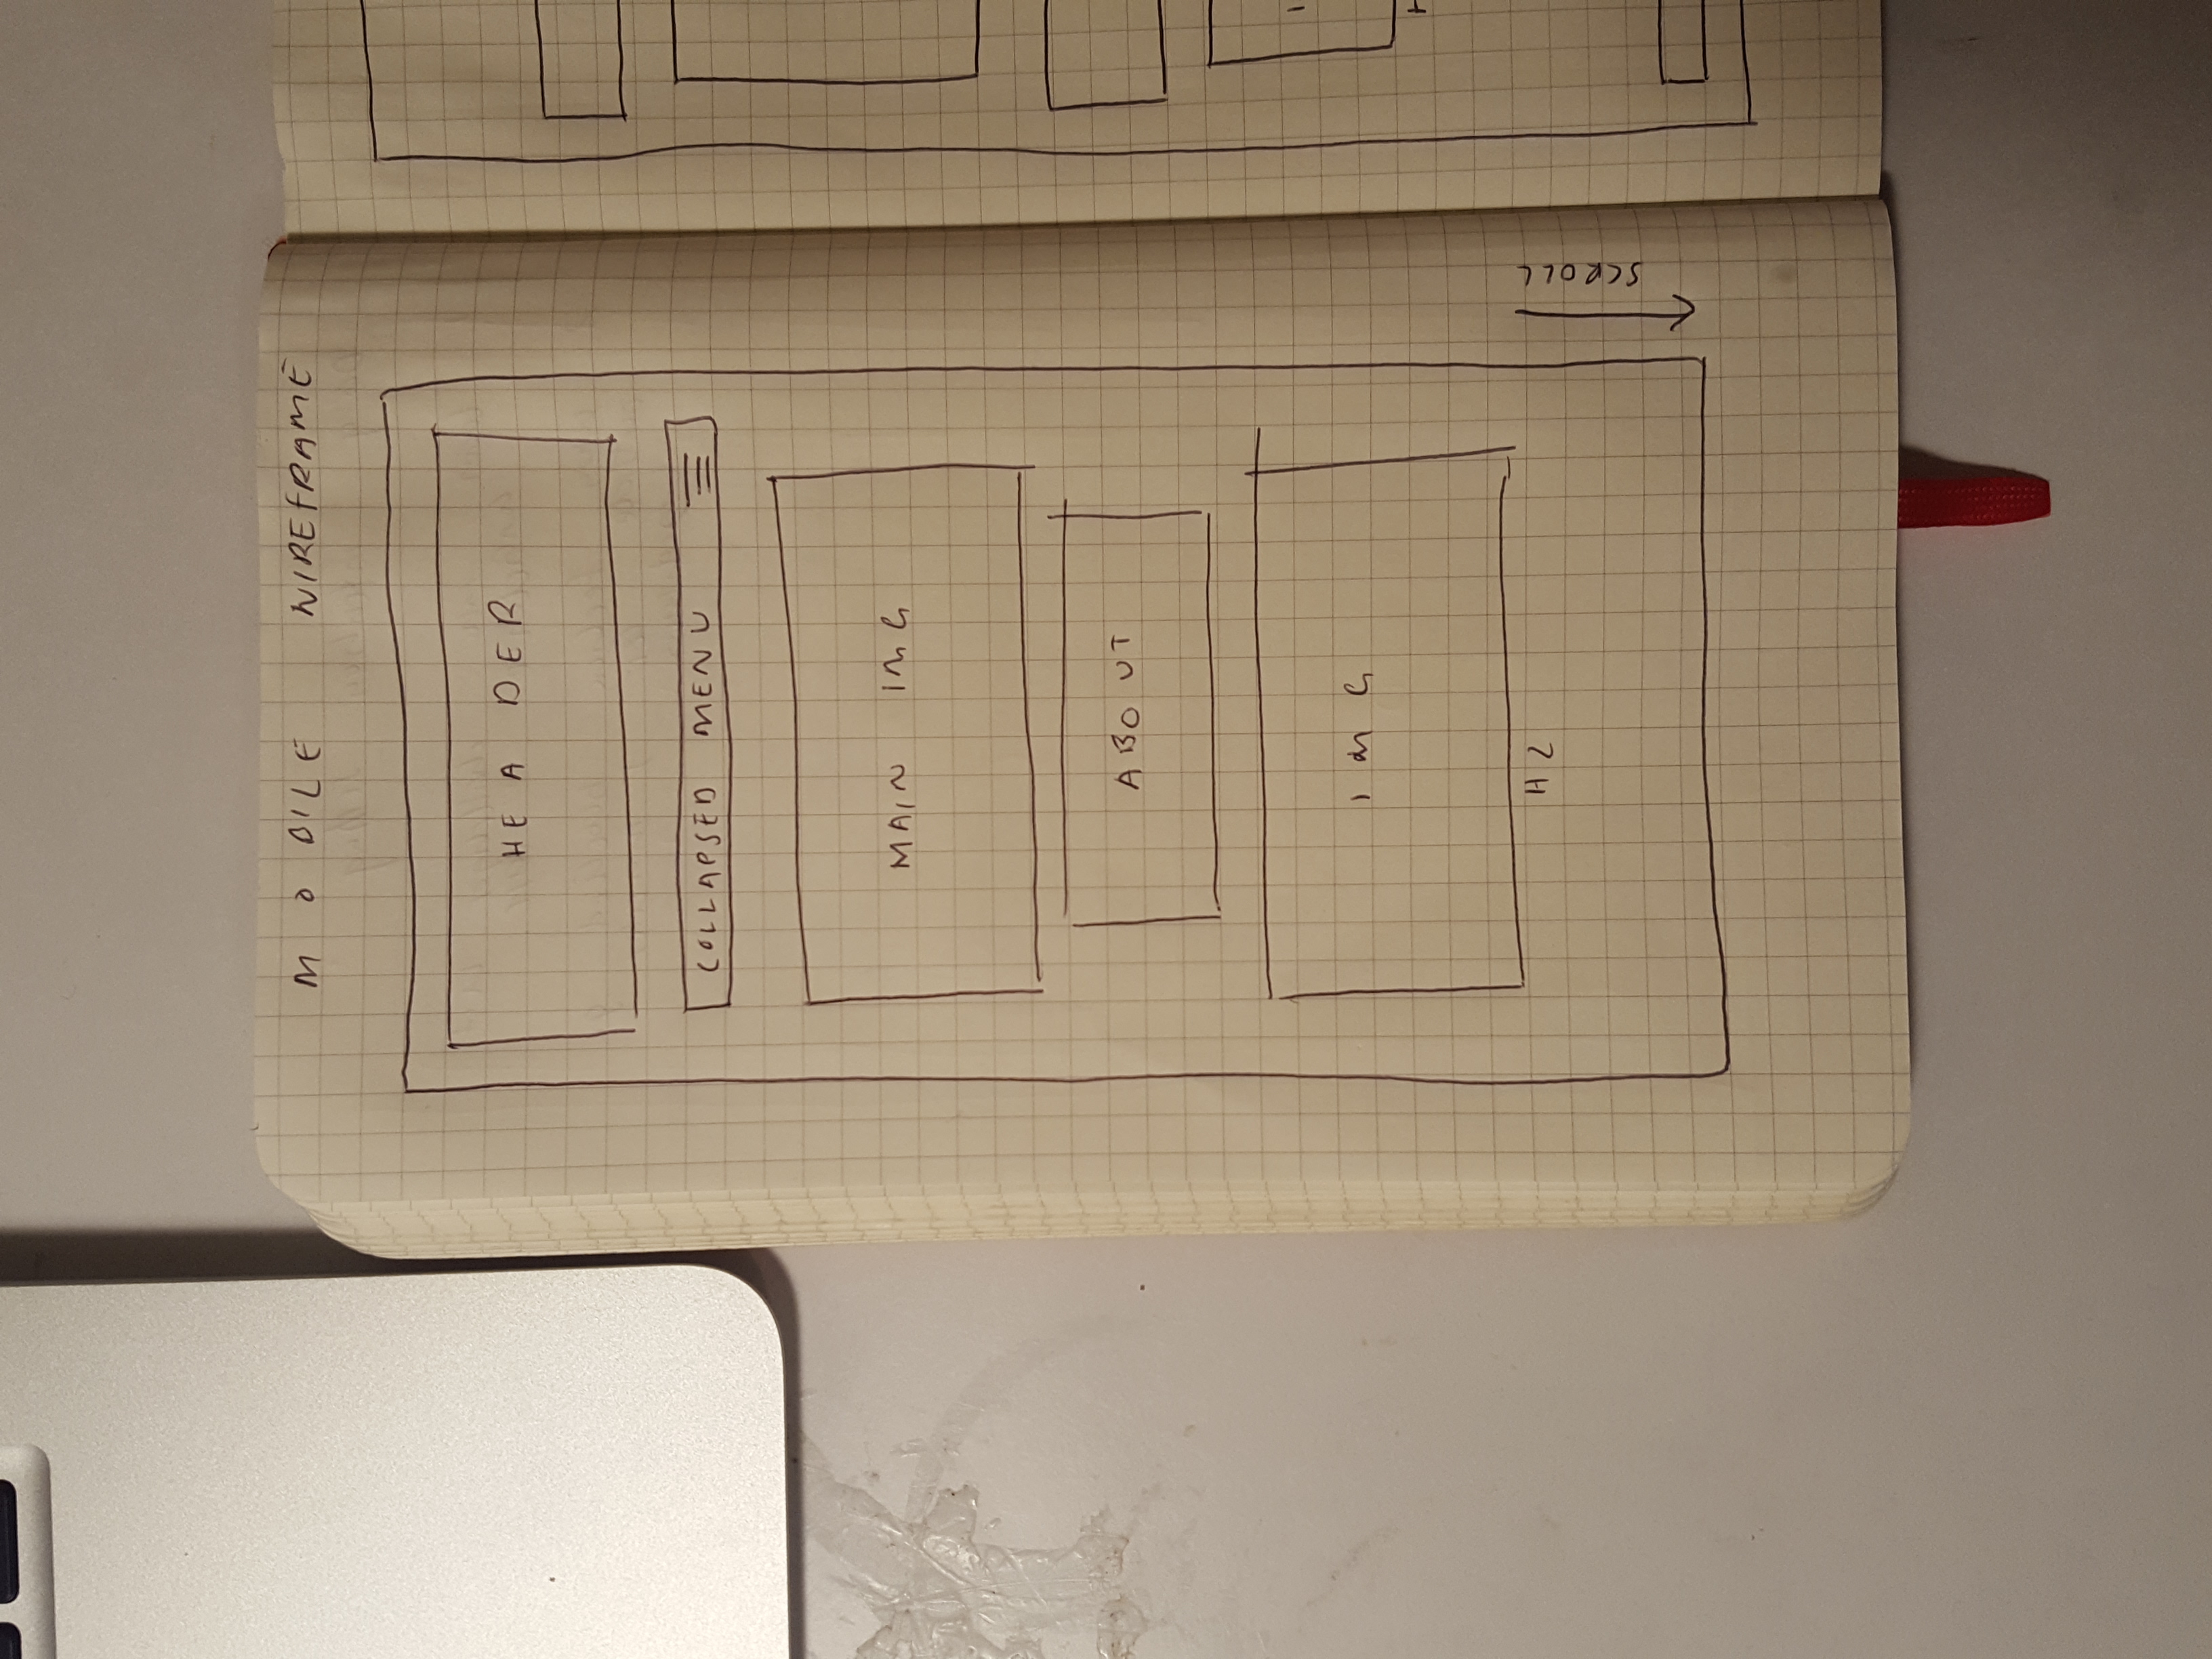 MOBILE WIREFRAME
HEADER
COLLAPSED MENU
MAIN IMG
ABOUT
IMG
H2
SCROLL